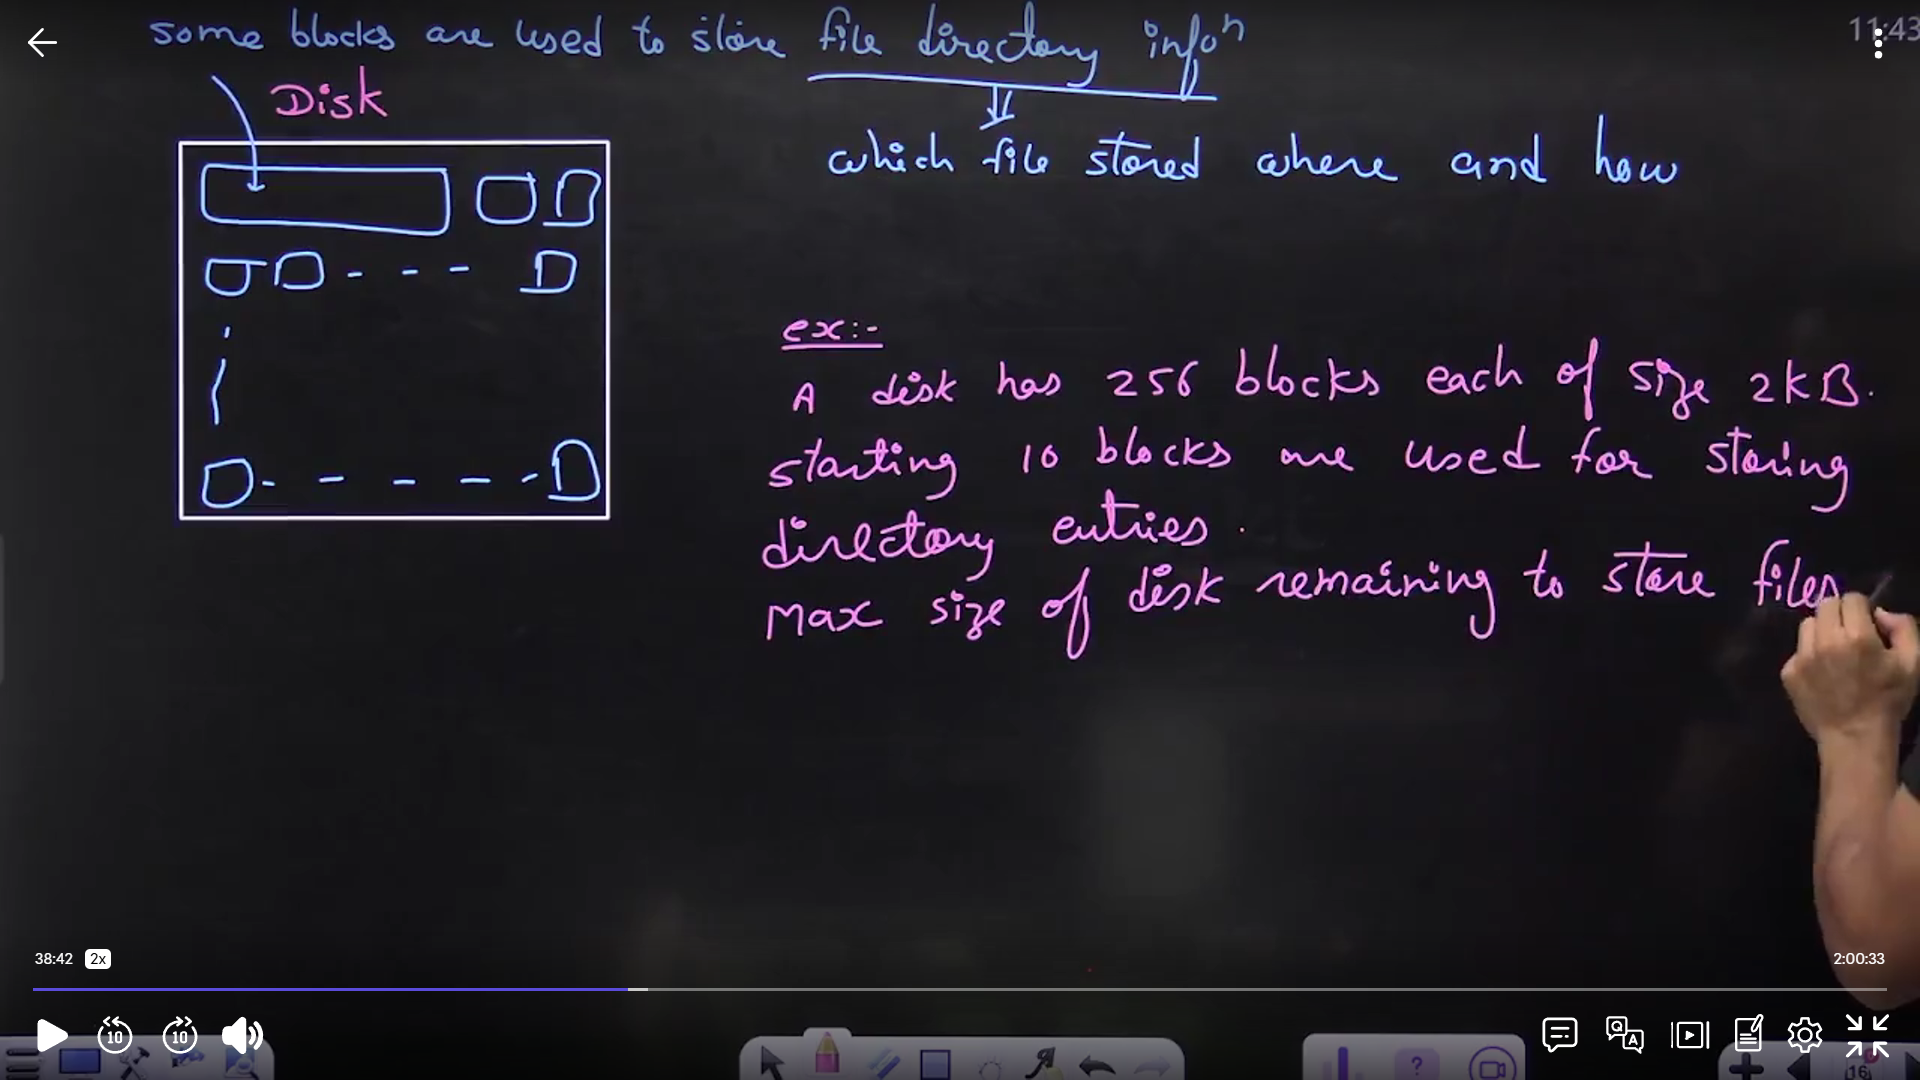 some blocks are used to store file directory infoⁿ
11:43
Disk
which file stored where and how
ex:-
A disk has 256 blocks each of size 2KB.
starting 10 blocks are used for storing
directory entries.
Max size of disk remaining to store files
38:42 2x
2:00:33
10 10
Q A
?
16